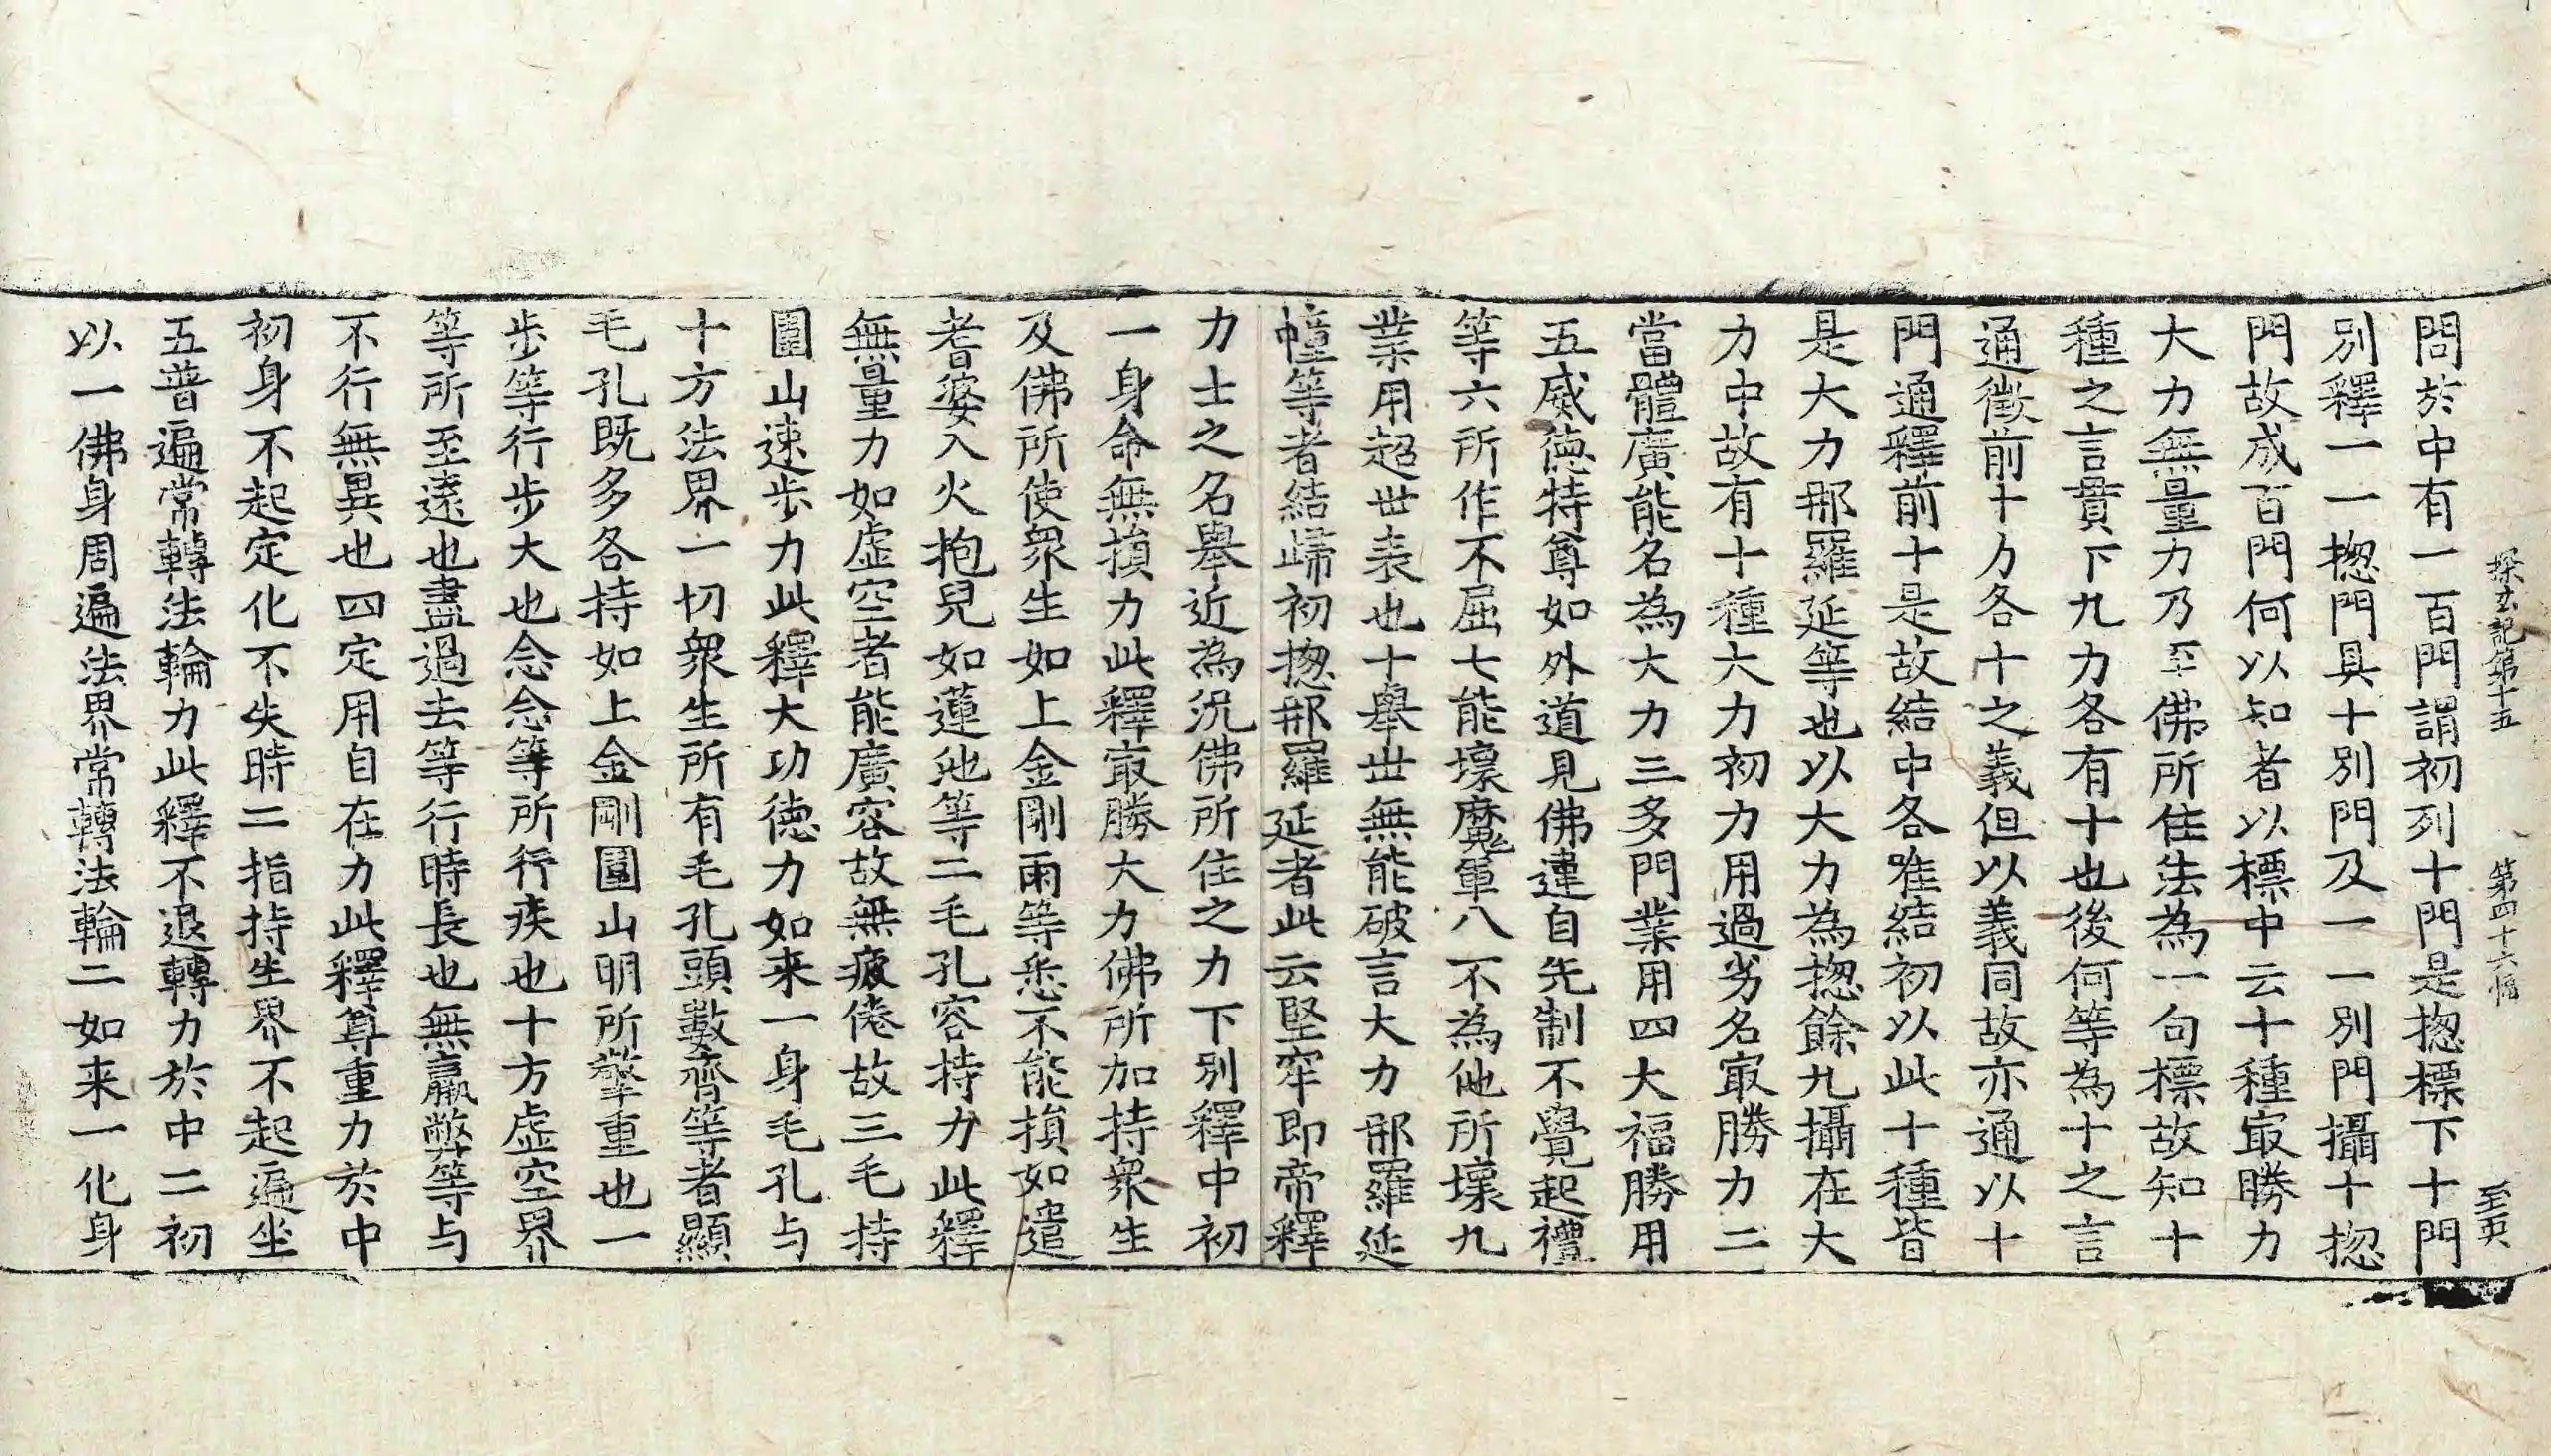 探玄記第十五 第四十六幅 至哭
問於中有一百門謂初列十門是揔標下十門
別釋一一揔門具十別門及一一別門攝十揔
門故成百門何以知者以標中云十種㝡勝力
大力無量力乃至佛所住法為一句標故知十
種之言貫下九力各有十也後何等為十之言
通徵前十力各十之義但以義同故亦通以十
門通釋前十是故結中各唯結初以此十種皆
是大力那羅延等也以大力為揔餘九攝在大
力中故有十種大力初力用過劣名㝡勝力二
當體廣能名為大力三多門業用四大福勝用
五威德特尊如外道見佛違自先制不覺起禮
等六所作不屈七能壞魔軍八不為他所壞九
業用超世表也十舉世無能破言大力那羅延
幢等者結歸初揔那羅延者此云堅牢即帝釋
力士之名舉近為況佛所住之力下別釋中初
一身命無損力此釋㝡勝大力佛所加持衆生
及佛所使衆生如上金剛雨等悉不能損如遣
耆婆入火抱兒如蓮池等二毛孔容持力此釋
無量力如虛空者能廣容故無疲倦故三毛持
圍山速步力此釋大功德力如来一身毛孔与
十方法界一切衆生所有毛孔頭數齊等者顯
毛孔既多各持如上金剛圍山明所擎重也一
步等行步大也念念等所行疾也十方虛空界
等所至遠也盡過去等行時長也無羸弊等与
不行無異也四定用自在力此釋尊重力於中
初身不起定化不失時二指持生界不起遍坐
五普遍常轉法輪力此釋不退轉力於中二初
以一佛身周遍法界常轉法輪二如来一化身